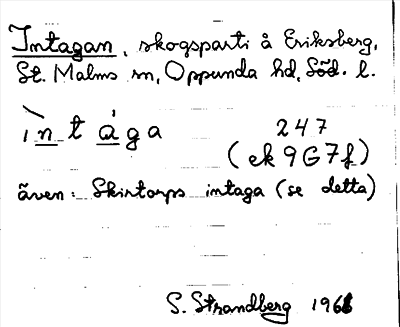 Intagan, skogsparti å Eriksberg,
St. Malms sn, Oppunda hd, Söd. l.
ìn tága 247
(ek 9G7f)
även: Skirtorps intaga (se detta)
S. Strandberg 1966